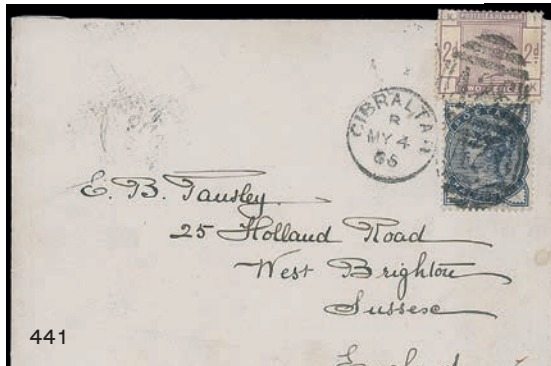 2d 2d
GIBRALTAR
R
MY 4
86
E. B. Tansley
25 Holland Road
West Brighton
Sussex
England
441